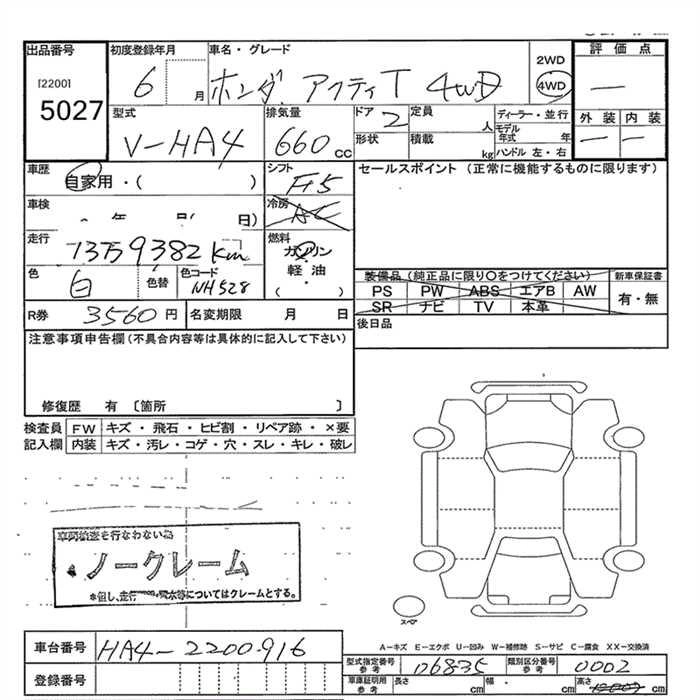 出品番号 初度登録年月 車名・グレード 評価点
[2200]
5027
6 月 ホンダ アクティT 4WD
2WD
4WD
—
外装 内装
— —
型式 排気量 ドア 定員 ディーラー・並行
V-HA4 660 cc 2 人 モデル年式 年
形状 積載 kg ハンドル 左・右
車歴 シフト セールスポイント (正常に機能するものに限ります)
自家用・( ) F5
車検 年 月( 日) 冷房 AC
走行 燃料
13万9382km ガソリン
軽油
( )
色 白 色替 色コード NH528
装備品 (純正品に限り○をつけてください) 新車保証書
PS PW ABS エアB AW 有・無
SR ナビ TV 本革
R券 3560 円 名変期限 月 日 後日品
注意事項申告欄 (不具合内容等は具体的に記入して下さい)
修復歴 有 〔箇所 〕
検査員 FW キズ・飛石・ヒビ割・リペア跡・×要
記入欄 内装 キズ・汚レ・コゲ・穴・スレ・キレ・破レ
車両検査を行なわない為
ノークレーム
*但し、走行 等についてはクレームとする。
スペア
A-キズ E-エクボ U-凹み W-補修跡 S-サビ C-腐食 XX-交換済
車台番号 HA4-2200916
型式指定番号 参考 06835 類別区分番号 参考 0002
登録番号
車庫証明用 参考 長さ cm 幅・ cm 高さ cm